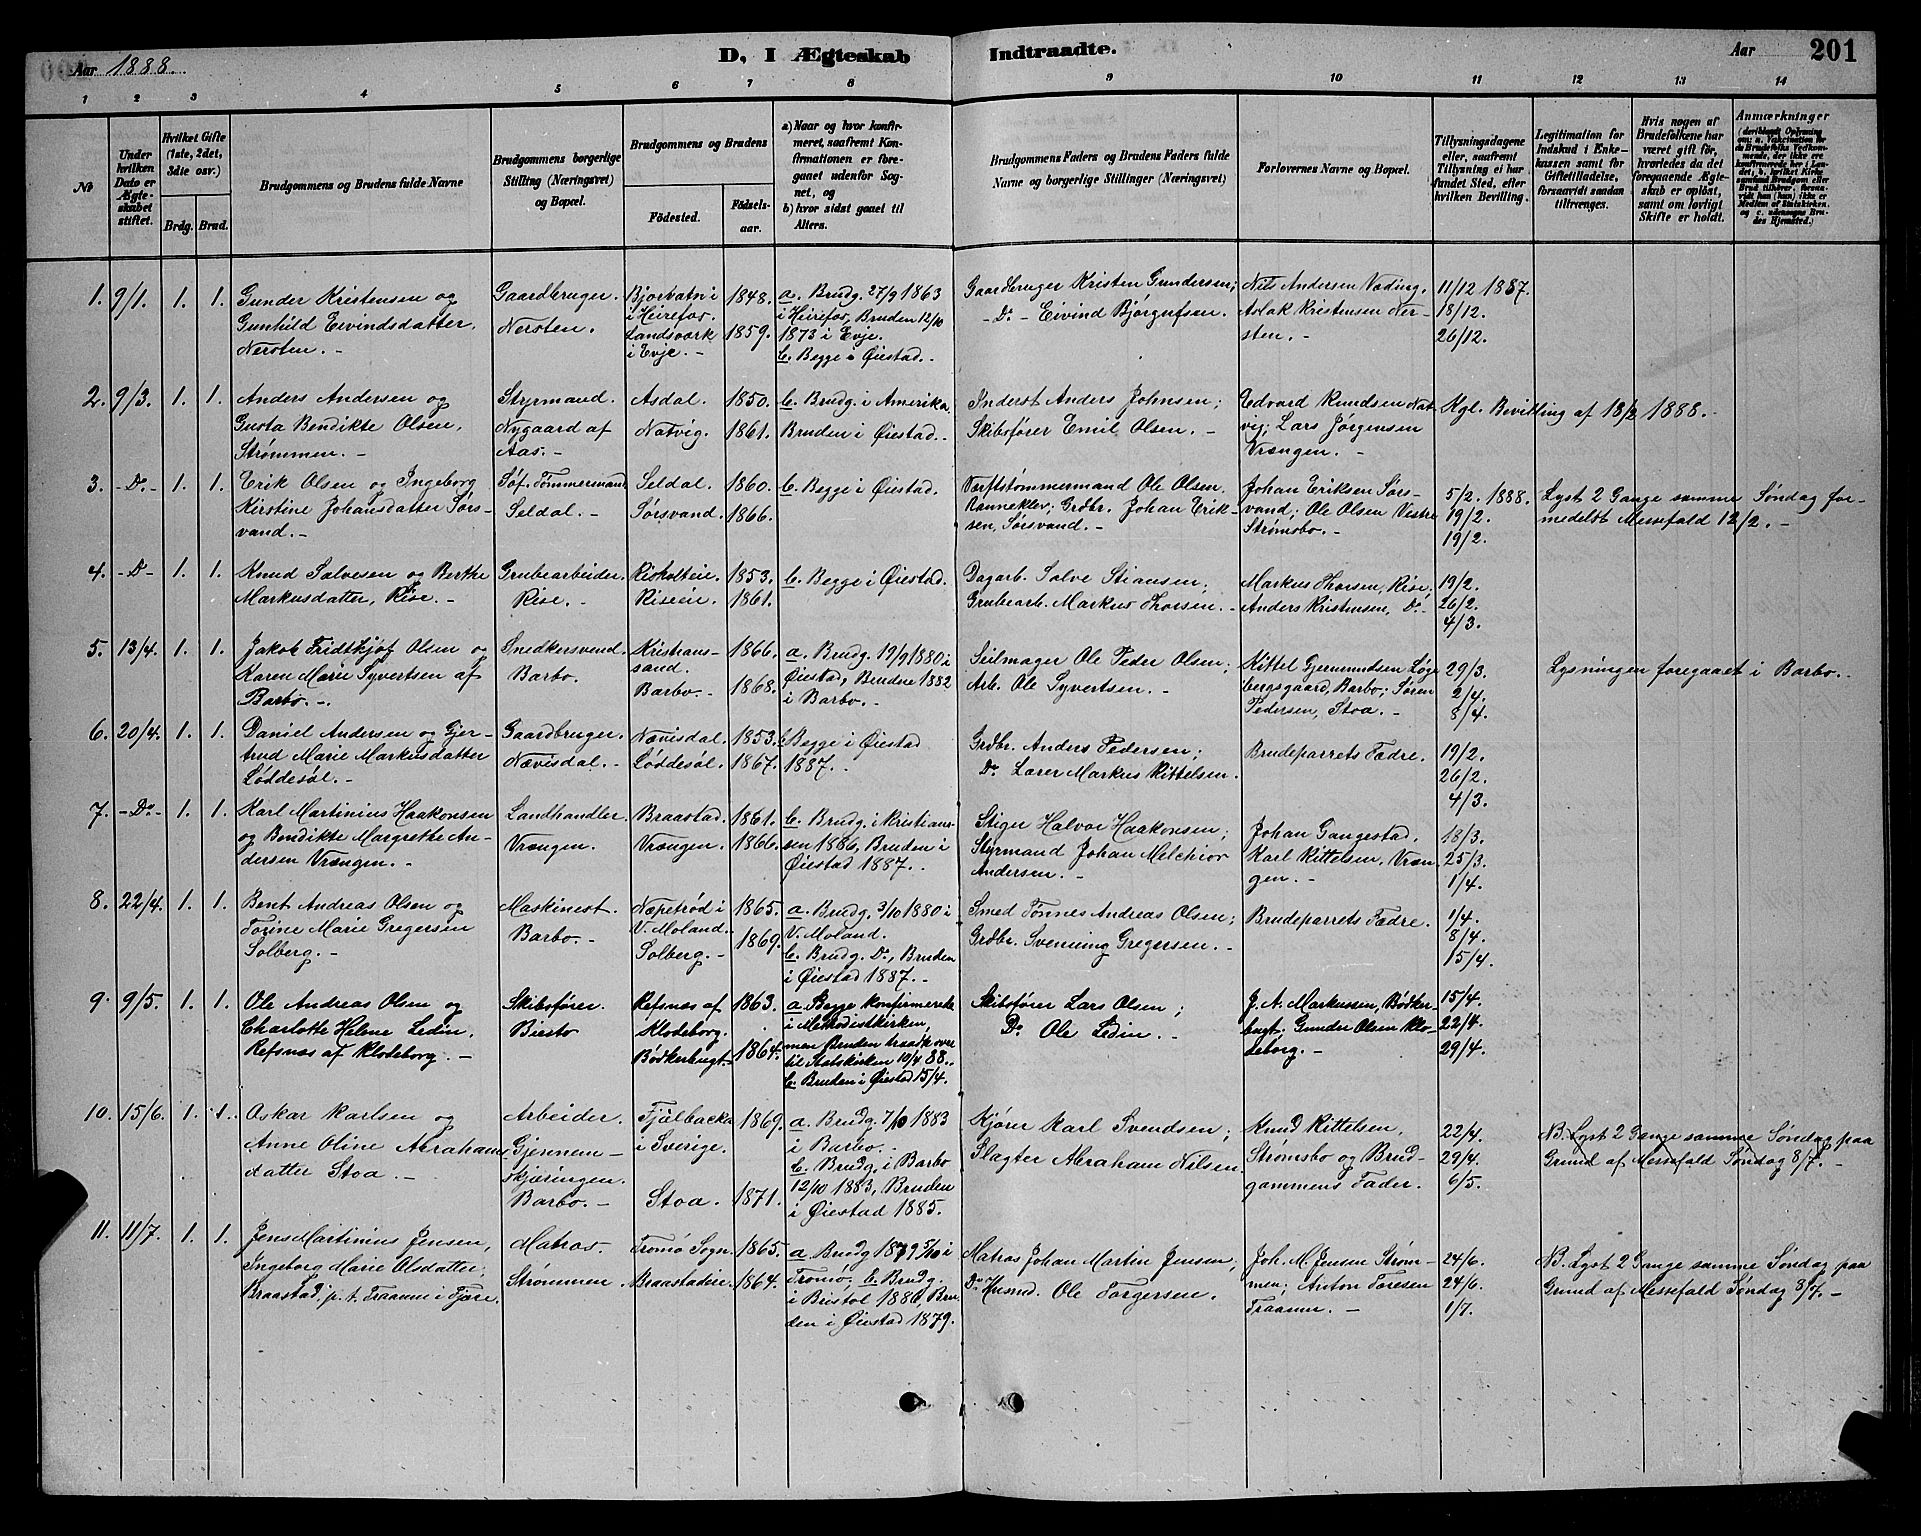 Aar 1888.
D, I Ægteskab Indtraadte.
Aar 201
1 2 3 4 5 6 7 8 9 10 11 12 13 14
№
Under hvilken Dato er Ægteskabet stiftet.
Hvilket Gifte (1ste, 2det, 3die osv.)
Brdg. Brud.
Brudgommens og Brudens fulde Navne
Brudgommens borgerlige Stilling (Næringsvei) og Bopæl.
Brudgommens og Brudens
Fødested.
Fødselsaar.
a) Naar og hvor konfirmeret, saafremt Konfirmationen er foregaaet udenfor Sognet, og
b) hvor sidst gaaet til Alters.
Brudgommens Faders og Brudens Faders fulde Navne og borgerlige Stillinger (Næringsvei)
Forlovernes Navne og Bopæl.
Tillysningsdagene eller, saafremt Tillysning ei har fundet Sted, efter hvilken Bevilling.
Legitimation for Indskud i Enkekassen samt for Giftetilladelse, forsaavidt saadan tiltrænges.
Hvis nogen af Brudefolkene har været gift før, hvorledes da det foregaaende Ægteskab er opløst, samt om lovligt Skifte er holdt.
Anmærkninger
1. 9/1. 1. 1. Gunder Kristensen og
Gunhild Eivindsdatter,
Nersten. -
Gaardbruger.
Nersten.
Bjorvatn i
i Heirefos.
Landsværk
i Evje. -
1848.
1859.
a. Brudg. 27/9 1863
i Heirefos, Bruden 12/10
1873 i Evje.
b. Begge i Øiestad. -
Gaardbruger Kristen Gundersen;
- Do - Eivind Bjorgufsen.
Nils Andersen Vading.
Aslak Kristensen Ner-
sten. -
11/12 1887.
18/12.
26/12.
2. 9/3. 1. 1. Anders Andersen og
Gusta Bendikte Olsen,
Strømmen. -
Styrmand.
Nygaard af
Aas. -
Asdal.
Natvig.
1850.
1861.
b. Brudg. i Amerika
Bruden i Øiestad. -
Inderst Anders Johnsen;
Skibsfører Emil Olsen. -
Edvard Knudsen Nat-
vig; Lars Jørgensen
Vrængen. -
Kgl. Bevilling af 18/2 1888. -
3. -Do.- 1. 1. Erik Olsen og Ingeborg
Kirstine Johansdatter Sørs-
vand. -
Søf. Tømmermand
Seldal. -
Seldal.
Sørsvand.
1860.
1866.
b. Begge i Øiestad.
Værftstømmermand Ole Olsen.
Kanneklev; Grdbr. Johan Erik-
sen, Sørsvand. -
Johan Eriksen Sørs-
vand; Ole Olsen Vestre
Strømsbo. -
5/2. 1888.
19/2.
19/2.
Lyst 2 Gange samme Søndag for-
medelst Messefald 12/2. -
4. -Do- 1. 1. Knud Salvesen og Berthe
Markusdatter, Rise. -
Grubearbeider.
Rise. -
Risholteie.
Riseeie.
1853.
1861.
b. Begge i Øiestad.
Dagarb. Salve Stiansen;
Grubearb. Markus Thorsen. -
Markus Thorsen, Rise;
Anders Kristensen, Do. -
19/2.
26/2.
4/3.
5. 13/4. 1. 1. Jakob Fridtkjøf Olsen og
Karen Marie Syvertsen af
Barbo. -
Snedkersvend.
Barbo.
Kristians-
sand.
Barbo. -
1866.
1868.
a. Brudg. 19/9 1880 i
Øiestad, Bruden 1882
i Barbo. -
Seilmager Ole Peder Olsen;
Arb. Ole Syvertsen. -
Kittel Gjermundsen Løge
bergsgaard, Barbo; Søren
Pedersen, Stoa. -
29/3.
2/4.
8/4.
Lysningen foregaaet i Barbo. -
6. 20/4. 1. 1. Daniel Andersen og Gjer-
trud Marie Markusdatter
Løddesøl. -
Gaardbruger.
Nævisdal. -
Nævisdal.
Løddesøl.
1853.
1867.
b. Begge i Øiestad
1887. -
Grdbr. Anders Pedersen;
Do. Lærer Markus Kittelsen.
Brudeparrets Fædre.
19/2.
26/2.
4/3.
7. -Do- 1. 1. Karl Martinius Haakonsen
og Bendikte Margrethe An-
dersen Vrængen. -
Landhandler.
Vrængen.
Braastad.
Vrængen.
1861.
1866.
b. Brudg. i Kristians-
sen 1886, Bruden i
Øiestad 1887. -
Stiger Halvor Haakonsen;
Styrmand Johan Melchior
Andersen. -
Johan Gangestad.
Karl Kittelsen, Vræn-
gen. -
18/3.
25/3.
1/4.
8. 22/4. 1. 1. Bent Andreas Olsen og
Tonne Marie Gregersen
Solberg. -
Maskinest.
Barbo. -
Næpetrød i
V. Moland.
Solberg. -
1865.
1869.
a. Brudg. 3/10 1880 i
V. Moland.
b. Brudg. Do., Bruden
i Øiestad 1887. -
Smed Tønnes Andreas Olsen;
Grdbr. Svenning Gregersen. -
Brudeparrets Fædre.
1/4.
8/4.
15/4.
9. 9/5. 1. 1. Ole Andreas Olsen og
Charlotte Helene Ledin,
Refsnæs af Klodeborg. -
Skibsfører.
Biesto
Refsnæs af
Klodeborg.
Bødkerbugt. -
1863.
1864.
a. Begge konfirmerede
i Methodistkirken,
men Bruden traadt over
til Statskirken 10/4 88. -
b. Bruden i Øiestad 15/4.
Skibsfører Lars Olsen;
Do. Ole Ledin. -
J. A. Markussen, Bødker
bugt; Gunder Olsen Klo-
deborg. -
15/4.
22/4.
29/4.
10. 15/6. 1. 1. Oskar Karlsen og
Anne Oline Abrahams
datter Stoa. -
Arbeider.
Gjennem-
skjæringen.
Barbo. -
Fjälbacka
i Sverige.
Stoa.
1869.
1871.
a. Brudg. 7/10 1883
i Barbo.
b. Brudg. i Barbo
12/10 1883, Bruden
i Øiestad 1885.
Kjører Karl Svendsen;
Slagter Abraham Nilsen.
Knud Kittelsen,
Strømsbo og Brud-
gommens Fader.
22/4.
29/4.
6/5.
NB. Lyst 2 Gange samme Søndag paa
Grund af Messefald Søndag 8/7. -
11. 11/7. 1. 1. Jens Martinius Jensen,
Ingeborg Marie Olsdatter;
Braastad, p. t. Traanne i Fjære.
Matros.
Strømmen.
Tromø Sogn.
Braastadeie.
1865.
1864.
a. Brudg 1879 5/10 i
Tromø, b. Brudg.
i Bristol 1886, Bru-
den i Øiestad 1879.
Matros Johan Martin Jensen;
Do Husmd. Ole Torgersen.
Joh. M. Jensen Strøm-
men; Anton Toresen
Traanne. -
24/6.
24/6.
1/7.
NB. Lyst 2 Gange samme Søndag paa
Grund af Messefald Søndag 8/7. -